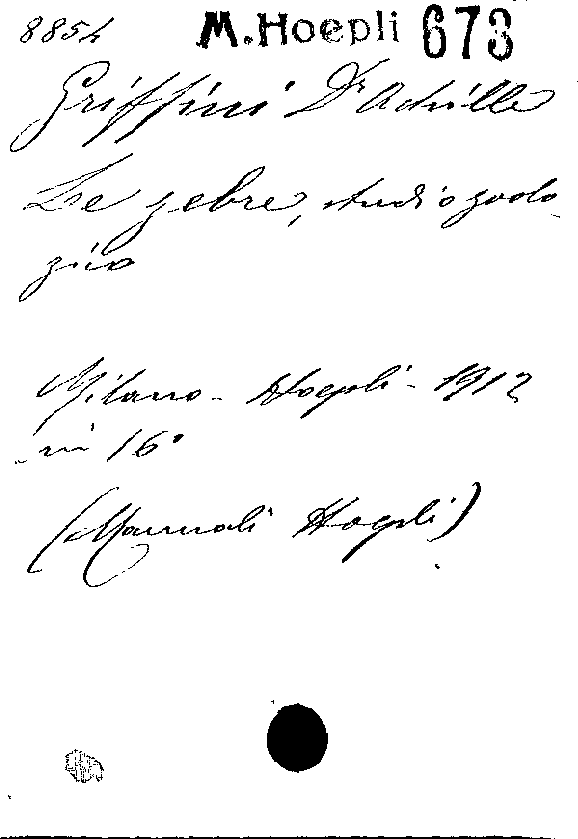 8854 M. Hoepli 673
Griffini Dr Achille
Le zebre, studio zoolo-
gico
Milano - Hoepli - 1912
in 16°
(Manuali Hoepli)